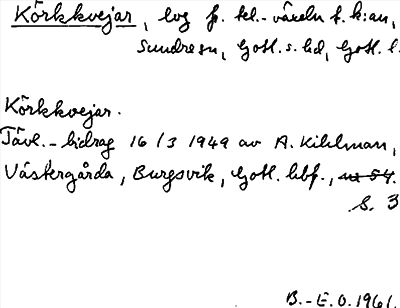 Körkkvejar, log fr. tel.-växeln t. k:an,
Sundre sn, Gotl. s. hd, Gotl. l.
Körkkvejar.
Tävl.-bidrag 16/3 1949 av A. Kihlman,
Västergårda, Burgsvik, Gotl. hbf.,
S. 3
B.-E.O. 1961.